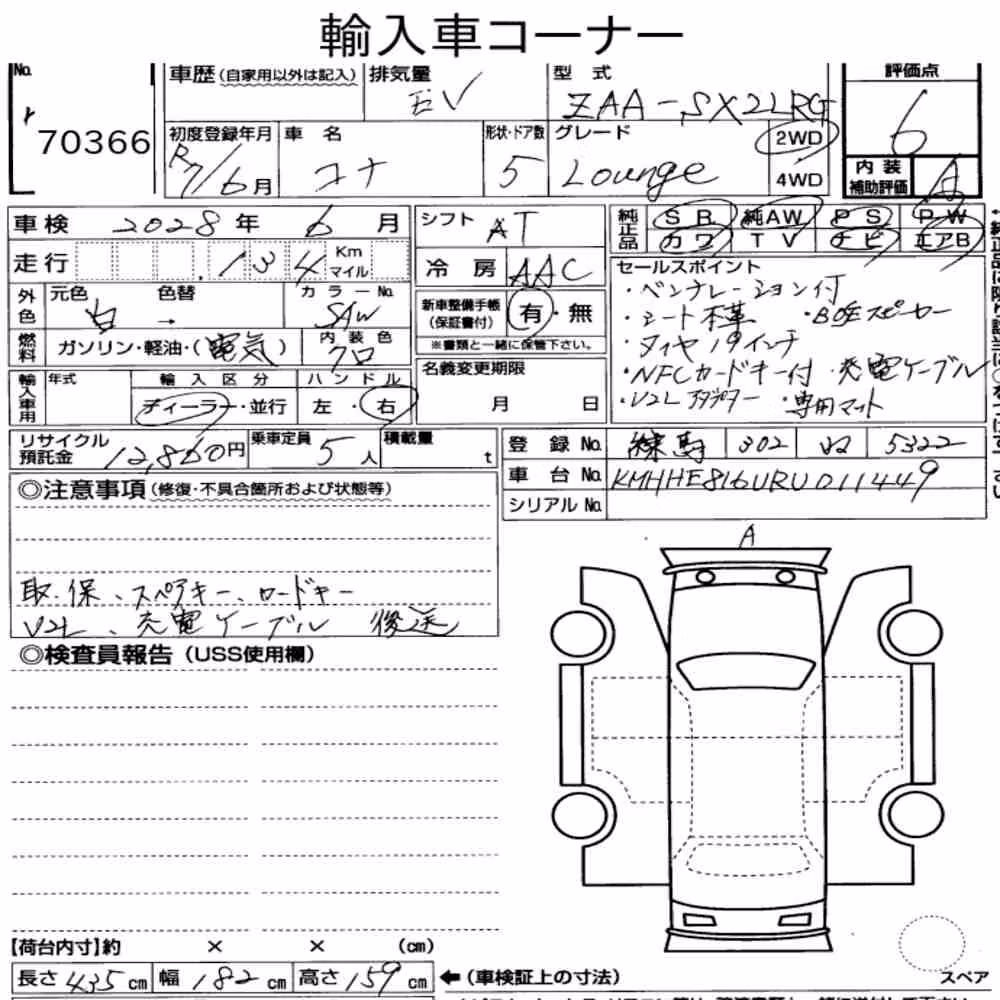 輸入車コーナー
No. 車歴(自家用以外は記入) 排気量 型式 評価点
EV ZAA-SX2LRG 6
70366
初度登録年月 車名 形状・ドア数 グレード 2WD
R7/6月 コナ 5 Lounge 4WD
内装補助評価 A
車検 2028年 6月 シフト AT 純正品 SR 純AW PS PW
カワ TV ナビ エアB
走行 134 Km マイル 冷房 AAC
セールスポイント
・ベンチレーション付
・シート本革 ・BOSEスピーカー
・タイヤ19インチ
・NFCカードキー付 充電ケーブル
・V2Lアダプター ・専用マット
外色 元色 色替 カラーNo.
白 → SAW
新車整備手帳(保証書付) 有・無
※書類と一緒に保管下さい。
燃料 ガソリン・軽油・(電気) 内装色 クロ
名義変更期限
月 日
輸入車用 年式 輸入区分 ハンドル
ディーラー・並行 左・右
リサイクル預託金 12,860円 乗車定員 5人 積載量 t
登録No. 練馬 302 481 5322
車台No. KMHHE816URU011449
シリアルNo.
◎注意事項(修復・不具合箇所および状態等)
取.保、スペアキー、カードキー
V2L、充電ケーブル 後送
◎検査員報告(USS使用欄)
A
【荷台内寸】約 × × (cm)
長さ 435 cm 幅 182 cm 高さ 159 cm ←(車検証上の寸法)
スペア